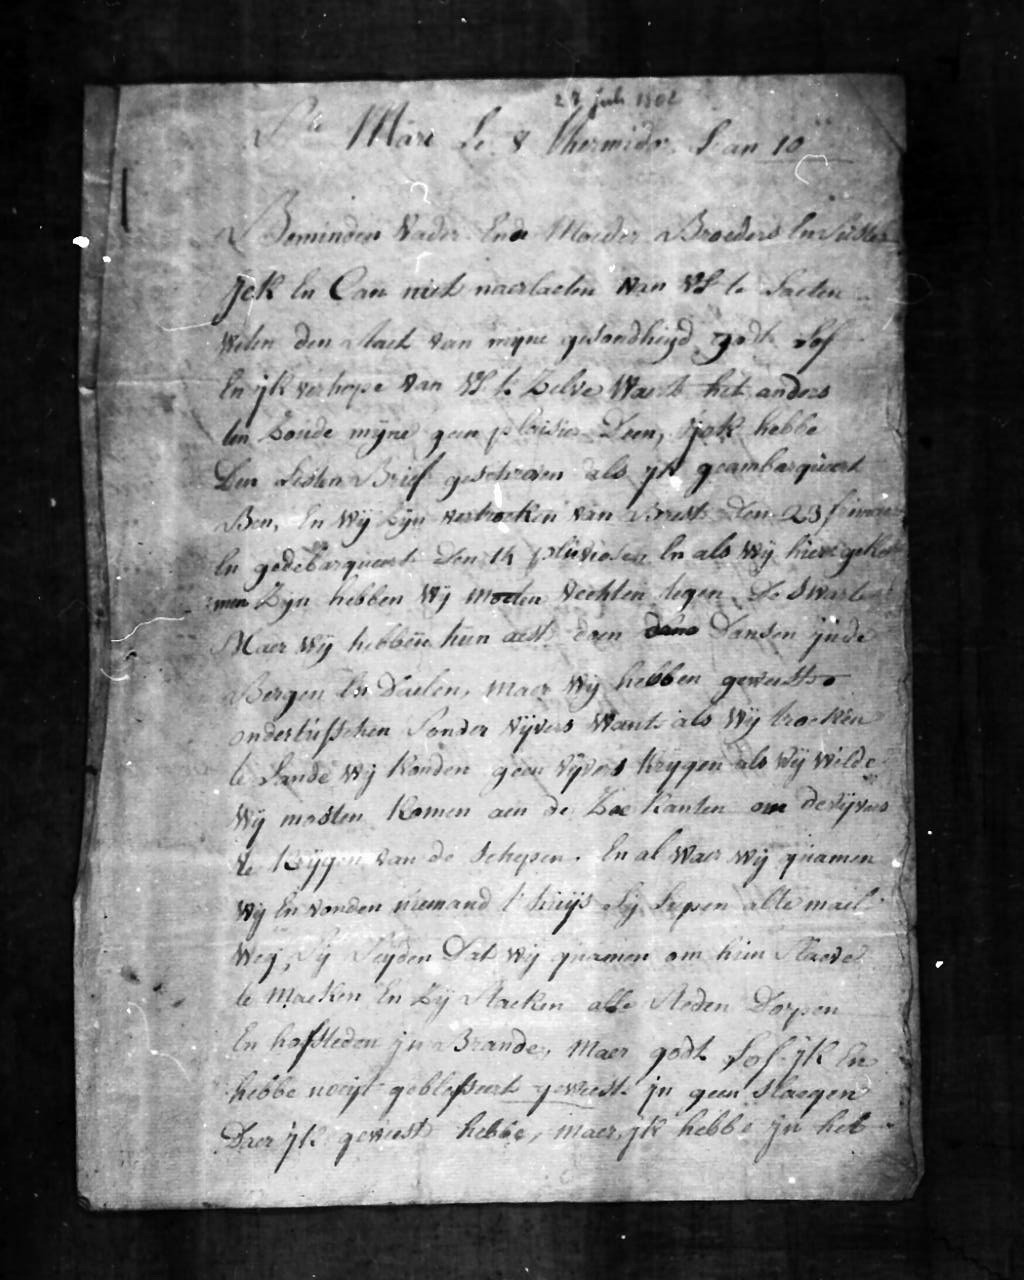 27 juli 1802
St Marc Le 8 thermidor Lan 10
Beminden Vader Ende Moeder Broeders En Suster
Jck En Can niet naerlaeten van Vl te Laeten
weten den staet van myne gesondheyd godt Lof
En jk verhope van Vl t Zelve Waert het anders
ten Zoude myne geen plaisier Doen, jjok hebbe
Den Lesten Brief geschreven als jk geambarqueert
Ben, En wij Zyn vertrocken van Brest Den 23 frimaer
En gedebarqueert Den 14 pluviose, En als wij hier geko
men Zyn hebben wij moeten vechten tegen De Swarte
Maer wij hebben hun aest doen Dansen jnde
Bergen En Daelen, maer wij hebben geweest
ondertusschen Sonder vijvers Want als wij trocken
te Lande wij konden geen vijvers krygen als wij wilde
wij mosten komen aen de Zee kanten om de vijvers
te krijgen van de Schepen. En al waer wij quamen
wij En vonden niemand t huijs Sij Liepen altemael
Weg, Sij Seyden Dat wij quamen om hun Slaeve
te maeken En Zij Staeken alle Steden Dorpen
En hofsteden jn Brande, maer godt Lof jk En
hebbe noeijt geblesseert geweest jn geen slaegen
Daer jk geweest hebbe, maer jk hebbe jn het